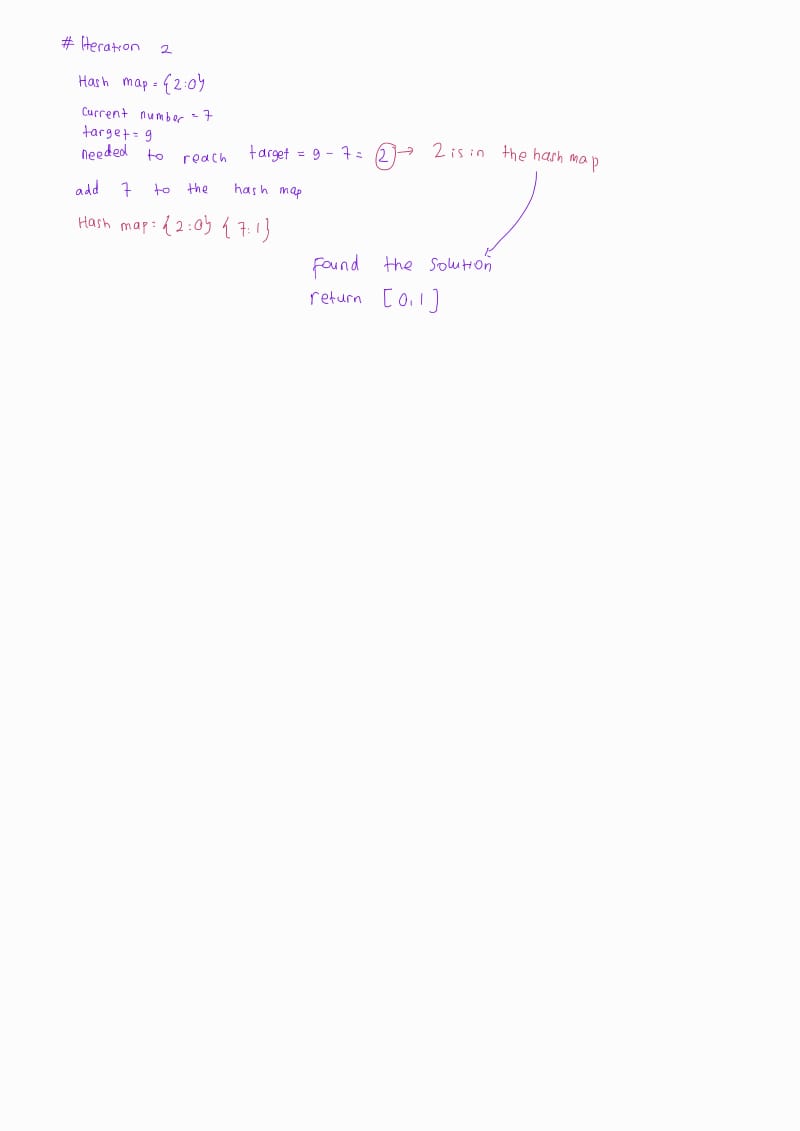 # Iteration 2
Hash map = {2:0}
Current number = 7
target = 9
needed to reach target = 9 - 7 = 2 → 2 is in the hash map
add 7 to the hash map
Hash map = {2:0} {7:1}
Found the solution
return [0,1]